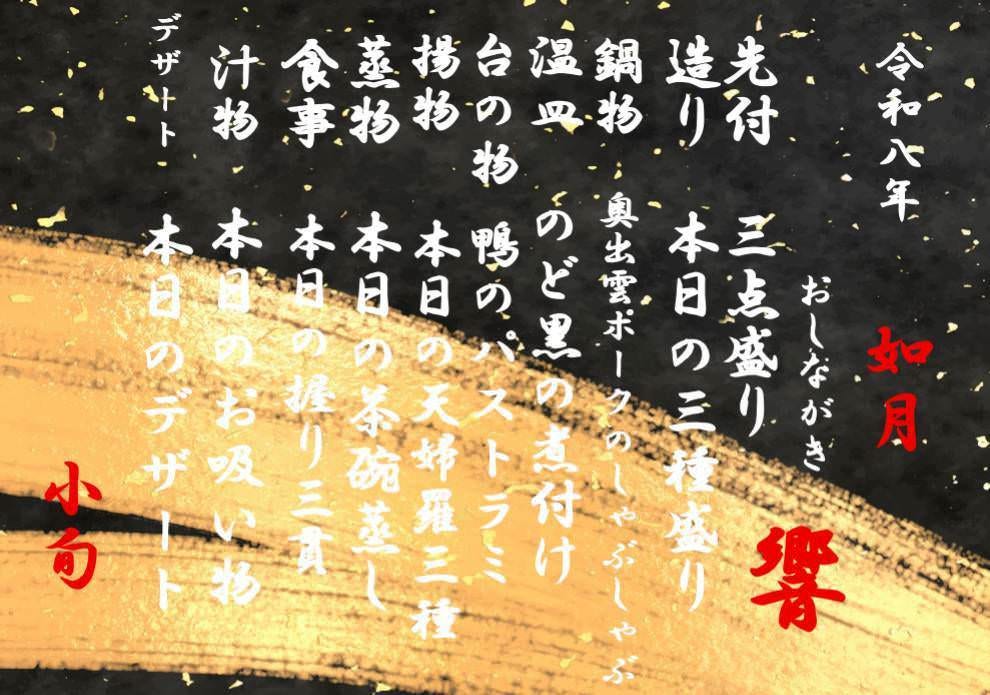 令和八年
如月
おしながき
響
先付　三点盛り
造り　本日の三種盛り
鍋物　奥出雲ポークのしゃぶしゃぶ
温皿　のど黒の煮付け
台の物　鴨のパストラミ
揚物　本日の天婦羅三種
蒸物　本日の茶碗蒸し
食事　本日の握り三貫
汁物　本日のお吸い物
デザート　本日のデザート
小旬